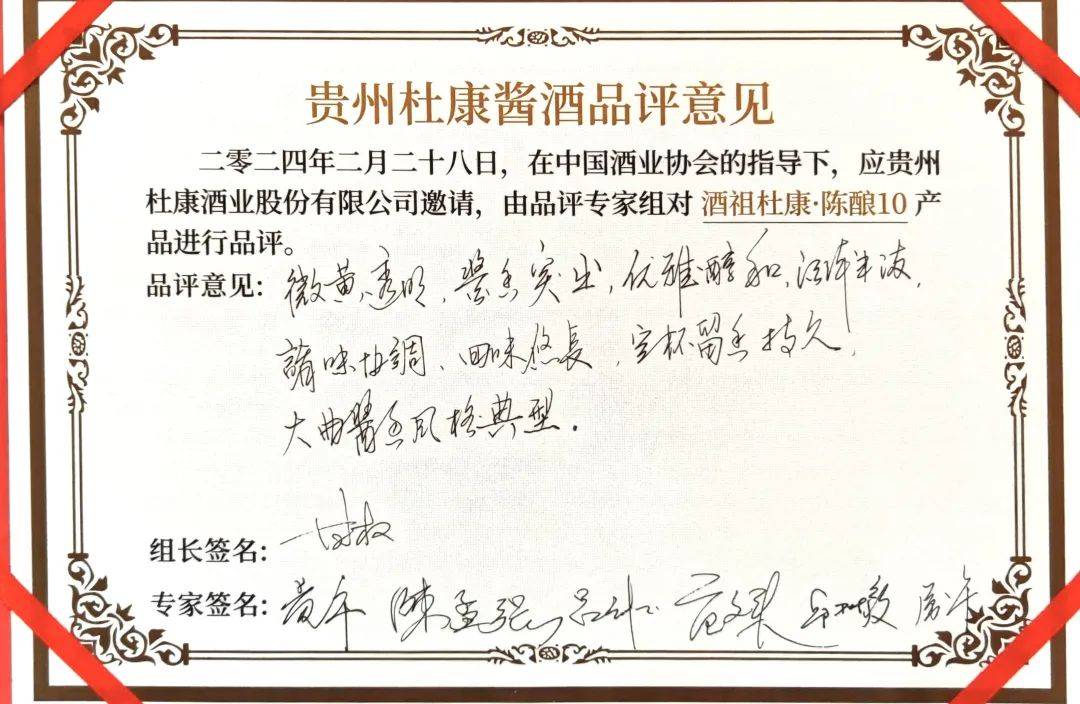 贵州杜康酱酒品评意见
二零二四年二月二十八日，在中国酒业协会的指导下，应贵州
杜康酒业股份有限公司邀请，由品评专家组对 酒祖杜康·陈酿10 产
品进行品评。
品评意见：微黄透明，酱香突出，优雅醇和，
諸味协調、回味悠長，空杯留香持久，
大曲醬香风格典型.
组长签名：
专家签名：